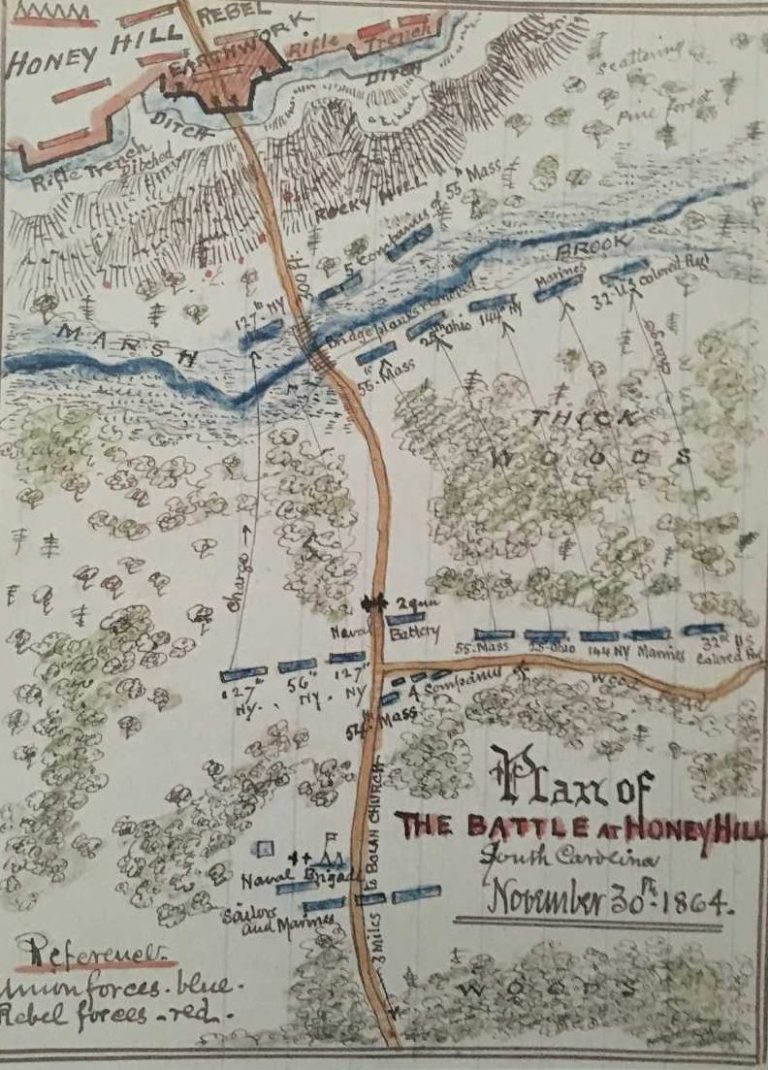 REBEL
HONEY HILL
EARTHWORK
Rifle Trench
DITCH
scattering
pine forest
DITCH
Rifle Trench
Ditched
ROCKY HILL
5 Companies of 55th Mass
127th NY
MARSH
BROOK
Bridge planks removed
55th Mass
25th Ohio
144th NY
Marines
32d U.S Colored Regt
THICK
WOODS
Charge
Charge
2 gun
Naval Battery
55 Mass
25 Ohio
144 NY
Marines
32nd US
Colored
127th NY.
56th NY.
127th NY
4 Companies
54th Mass
Wood
Plan of
THE BATTLE AT HONEY HILL
South Carolina
November 30th 1864.
Naval Brigade
Sailors
and Marines
3 Miles to BOLAN CHURCH
WOODS
References.
Union forces - blue.
Rebel forces - red.